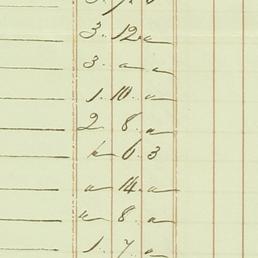 3 . 12 . "
3 . " "
1 . 10 . "
2 8 . "
" 6 . 3
" 14 . "
" 8 . "
1 . 7 . "